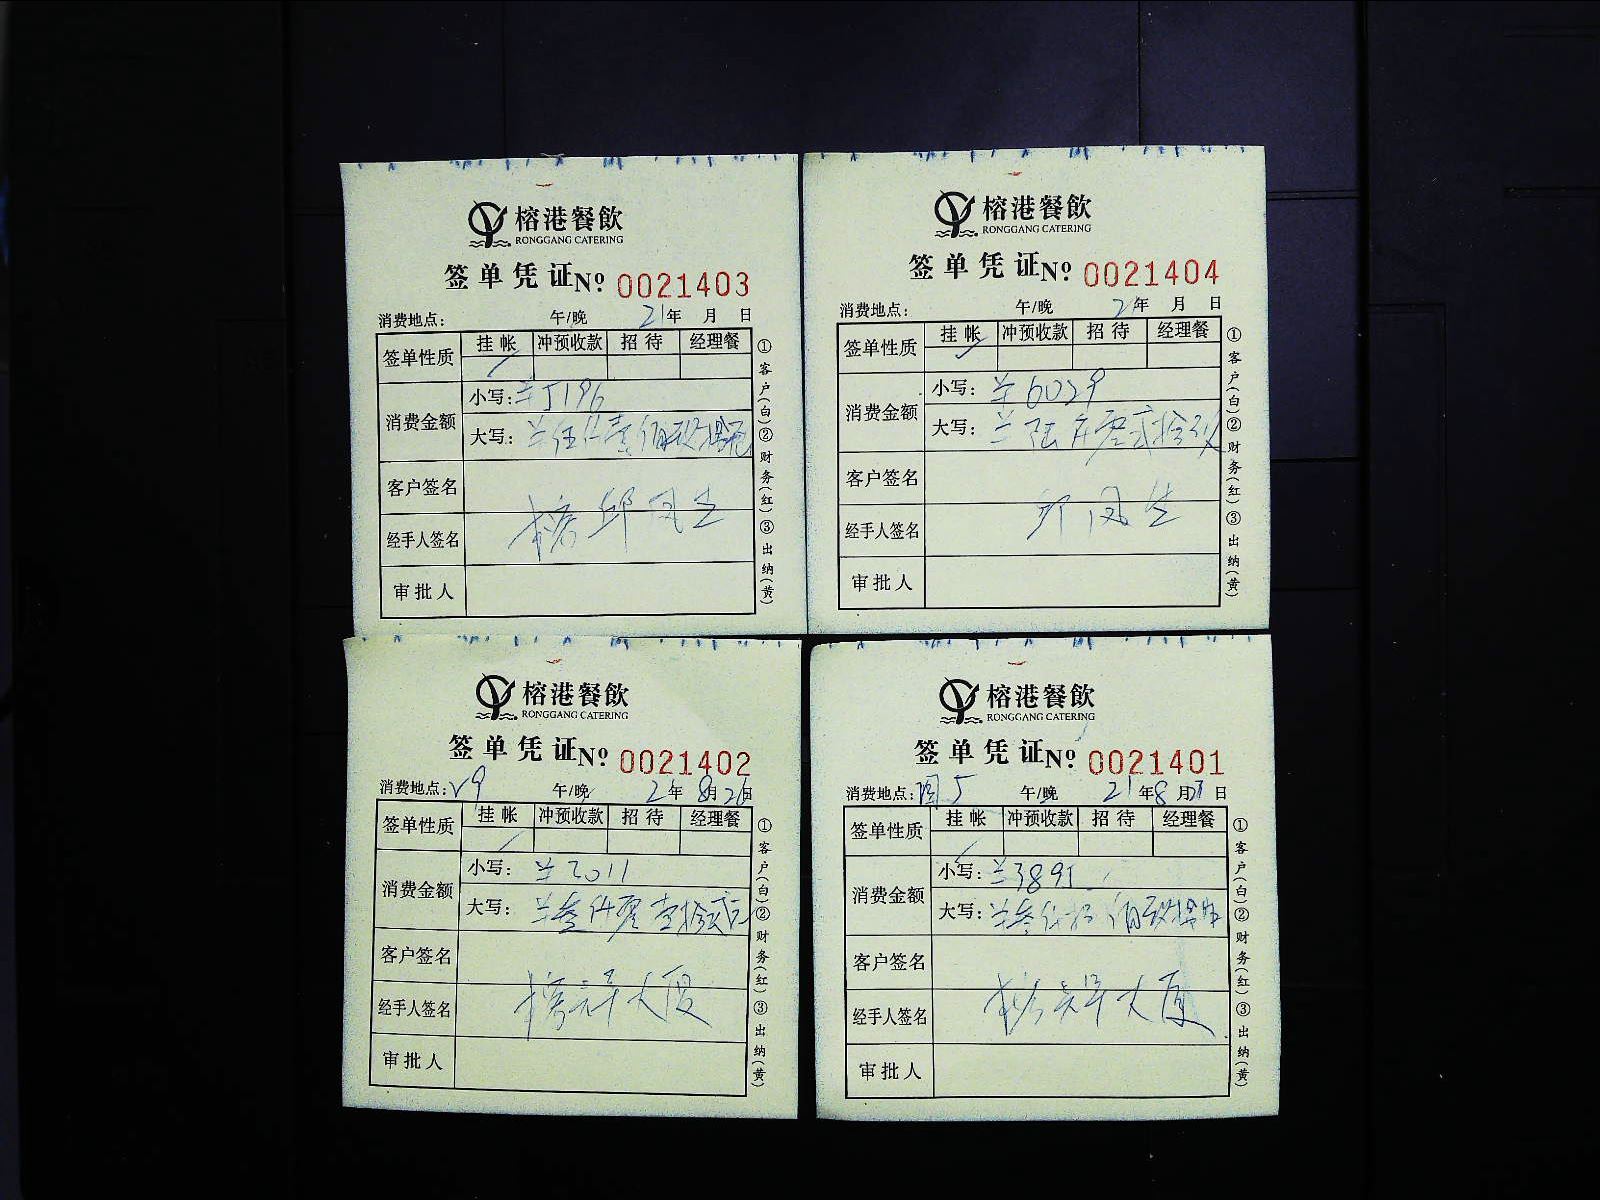 榕港餐飲
RONGGANG CATERING
签单凭证 Nº 0021403
消费地点: 午/晚 21年 月 日
签单性质 挂帐 冲预收款 招待 经理餐
消费金额
小写:¥5196
大写:
客户签名
经手人签名 邱凤生
审批人
①客户(白)②财务(红)③出纳(黄)
榕港餐飲
RONGGANG CATERING
签单凭证 Nº 0021404
消费地点: 午/晚 2年 月 日
签单性质 挂帐 冲预收款 招待 经理餐
消费金额
小写:¥6029
大写:
客户签名
经手人签名 邱凤生
审批人
①客户(白)②财务(红)③出纳(黄)
榕港餐飲
RONGGANG CATERING
签单凭证 Nº 0021402
消费地点:V9 午/晚 2年 8月26日
签单性质 挂帐 冲预收款 招待 经理餐
消费金额
小写:
大写:
客户签名
经手人签名 大厦
审批人
①客户(白)②财务(红)③出纳(黄)
榕港餐飲
RONGGANG CATERING
签单凭证 Nº 0021401
消费地点: 午/晚 21年8月21日
签单性质 挂帐 冲预收款 招待 经理餐
消费金额
小写:¥3895
大写:
客户签名
经手人签名 大厦
审批人
①客户(白)②财务(红)③出纳(黄)